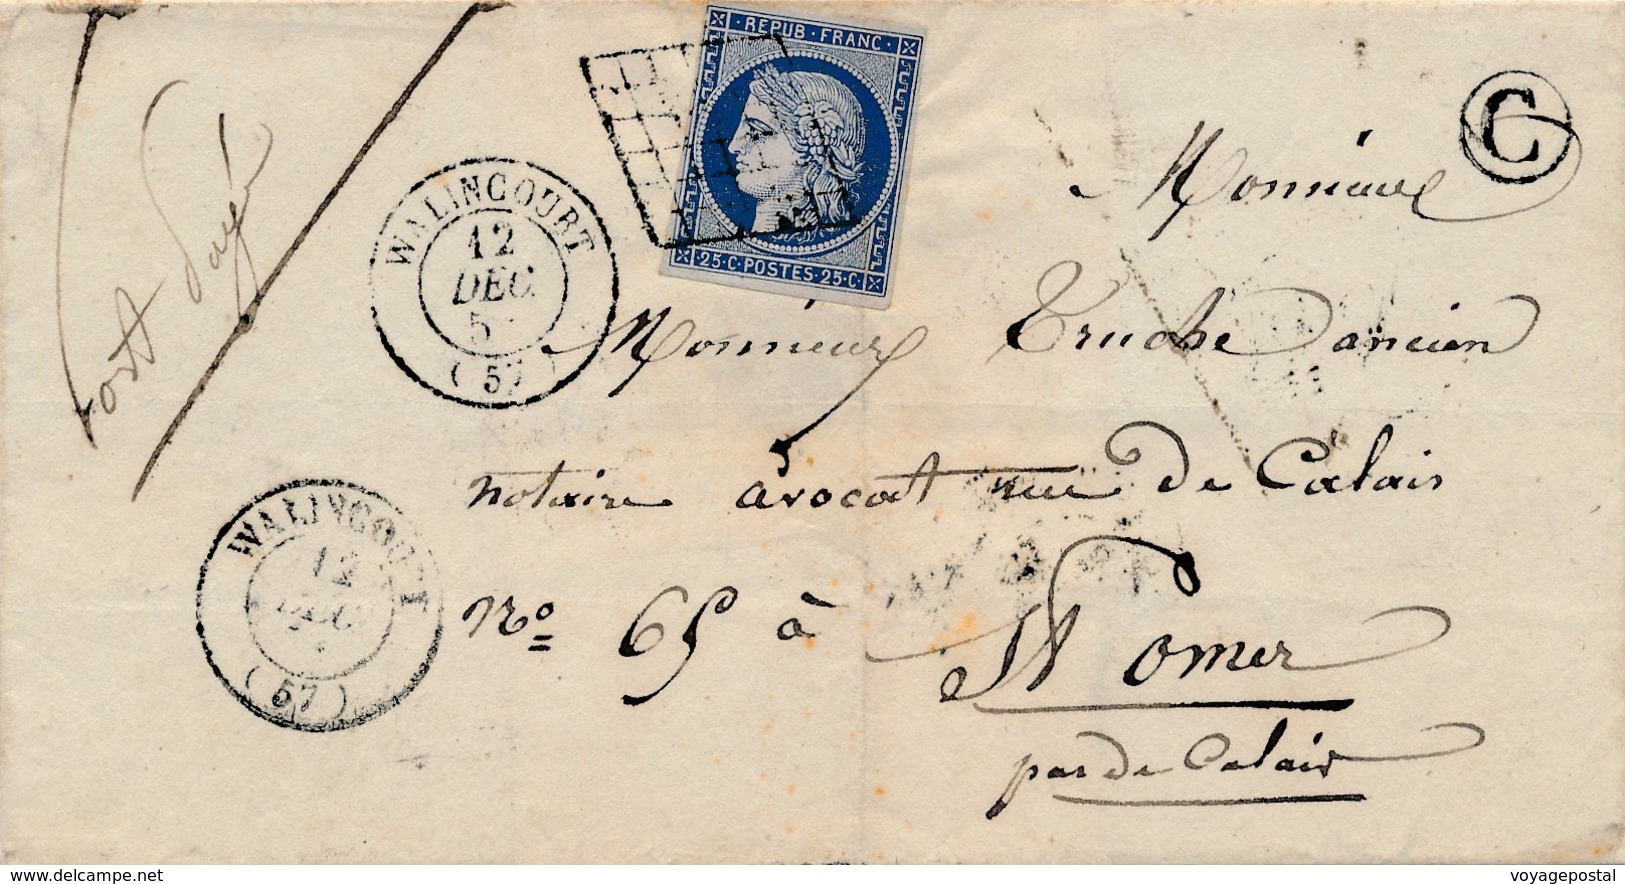 REPUB·FRANC·
25·C·POSTES·25·C·
C
Port Payé
WALINCOURT
12
DEC.
5
(57)
Monsieur
Monsieur Truche ancien
notaire avocat rue de Calais
No 65 à St Omer
pas de Calais
WALINCOURT
12
DEC
(57)
www.delcampe.net
voyagepostal